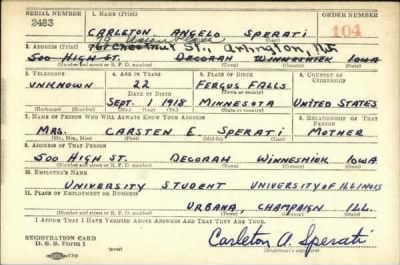 SERIAL NUMBER 1. NAME (Print) ORDER NUMBER
2483 CARLETON ANGELO SPERATI 104
(First) (Middle) (Last)
2. ADDRESS (Print)
761 Chestnut St., Arlington, N.J.
500 HIGH ST. DECORAH WINNESHIEK IOWA
(Number and street or R. F. D. number) (Town) (County) (State)
3. TELEPHONE 4. AGE IN YEARS 5. PLACE OF BIRTH 6. COUNTRY OF CITIZENSHIP
UNKNOWN 22 FERGUS FALLS
DATE OF BIRTH (Town or county)
SEPT. 1 1918 MINNESOTA UNITED STATES
(Exchange) (Number) (Mo.) (Day) (Yr.) (State or country)
7. NAME OF PERSON WHO WILL ALWAYS KNOW YOUR ADDRESS 8. RELATIONSHIP OF THAT PERSON
MRS. CARSTEN E. SPERATI MOTHER
(Mr., Mrs., Miss) (First) (Middle) (Last)
9. ADDRESS OF THAT PERSON
500 HIGH ST. DECORAH WINNESHIEK IOWA
(Number and street or R. F. D. number) (Town) (County) (State)
10. EMPLOYER'S NAME
UNIVERSITY STUDENT UNIVERSITY OF ILLINOIS
11. PLACE OF EMPLOYMENT OR BUSINESS
URBANA, CHAMPAIGN ILL.
(Number and street or R. F. D. number) (Town) (County) (State)
I AFFIRM THAT I HAVE VERIFIED ABOVE ANSWERS AND THAT THEY ARE TRUE.
REGISTRATION CARD
D. S. S. Form 1 Carleton A. Sperati
(Registrant's signature)